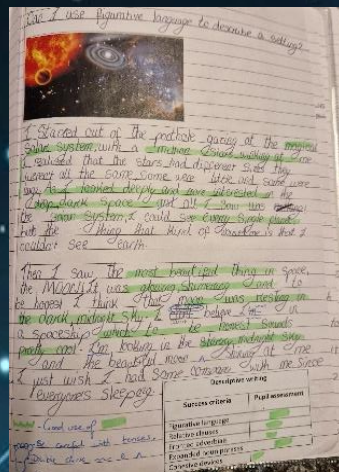 I use figurative language to describe a setting?
I starred out of the porthole gazing at the magical
solar system, with a million stars staring at me
I realised that the stars had different sizes they
weren't all the same, some were and some were
As I looked deeply and more interested in the
deep dark space and all I saw was
the solar system, I could see every single planet
but the thing that kind of is that I
couldn't see earth.
Then I saw the most beautiful thing in space,
the MOON! It was glowing, shimmering and to
be honest I think that moon was resting in
the dark, midnight sky. I in
a spaceship which to be honest sounds
pretty cool. I'm looking in the midnight sky
and the beautiful moon staring at me
I just wish I had some company with me since
everyones sleeping
Good use of
careful with tenses.
Descriptive writing
Success criteria
Pupil assessment
Figurative language
Relative clauses
Fronted adverbials
Expanded noun phrases
Cohesive devices